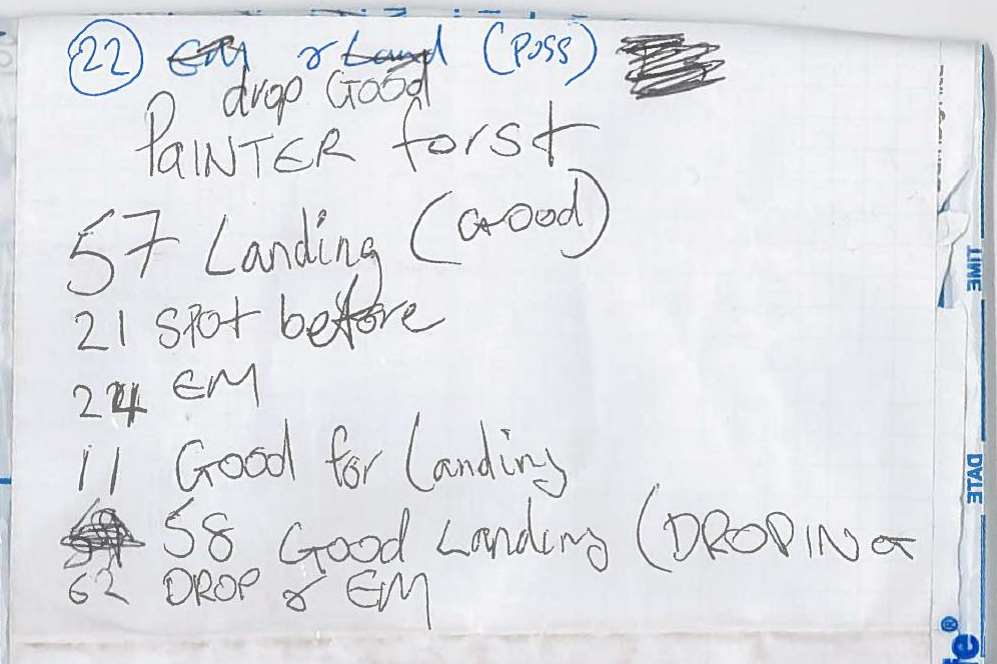 22 EM & Land (Poss)
drop Good
PAINTER forst
57 Landing (Good)
21 SPOT before
24 EM
11 Good for Landing
58 Good Landing (DROP IN or
62 DROP & EM
TIME
DATE